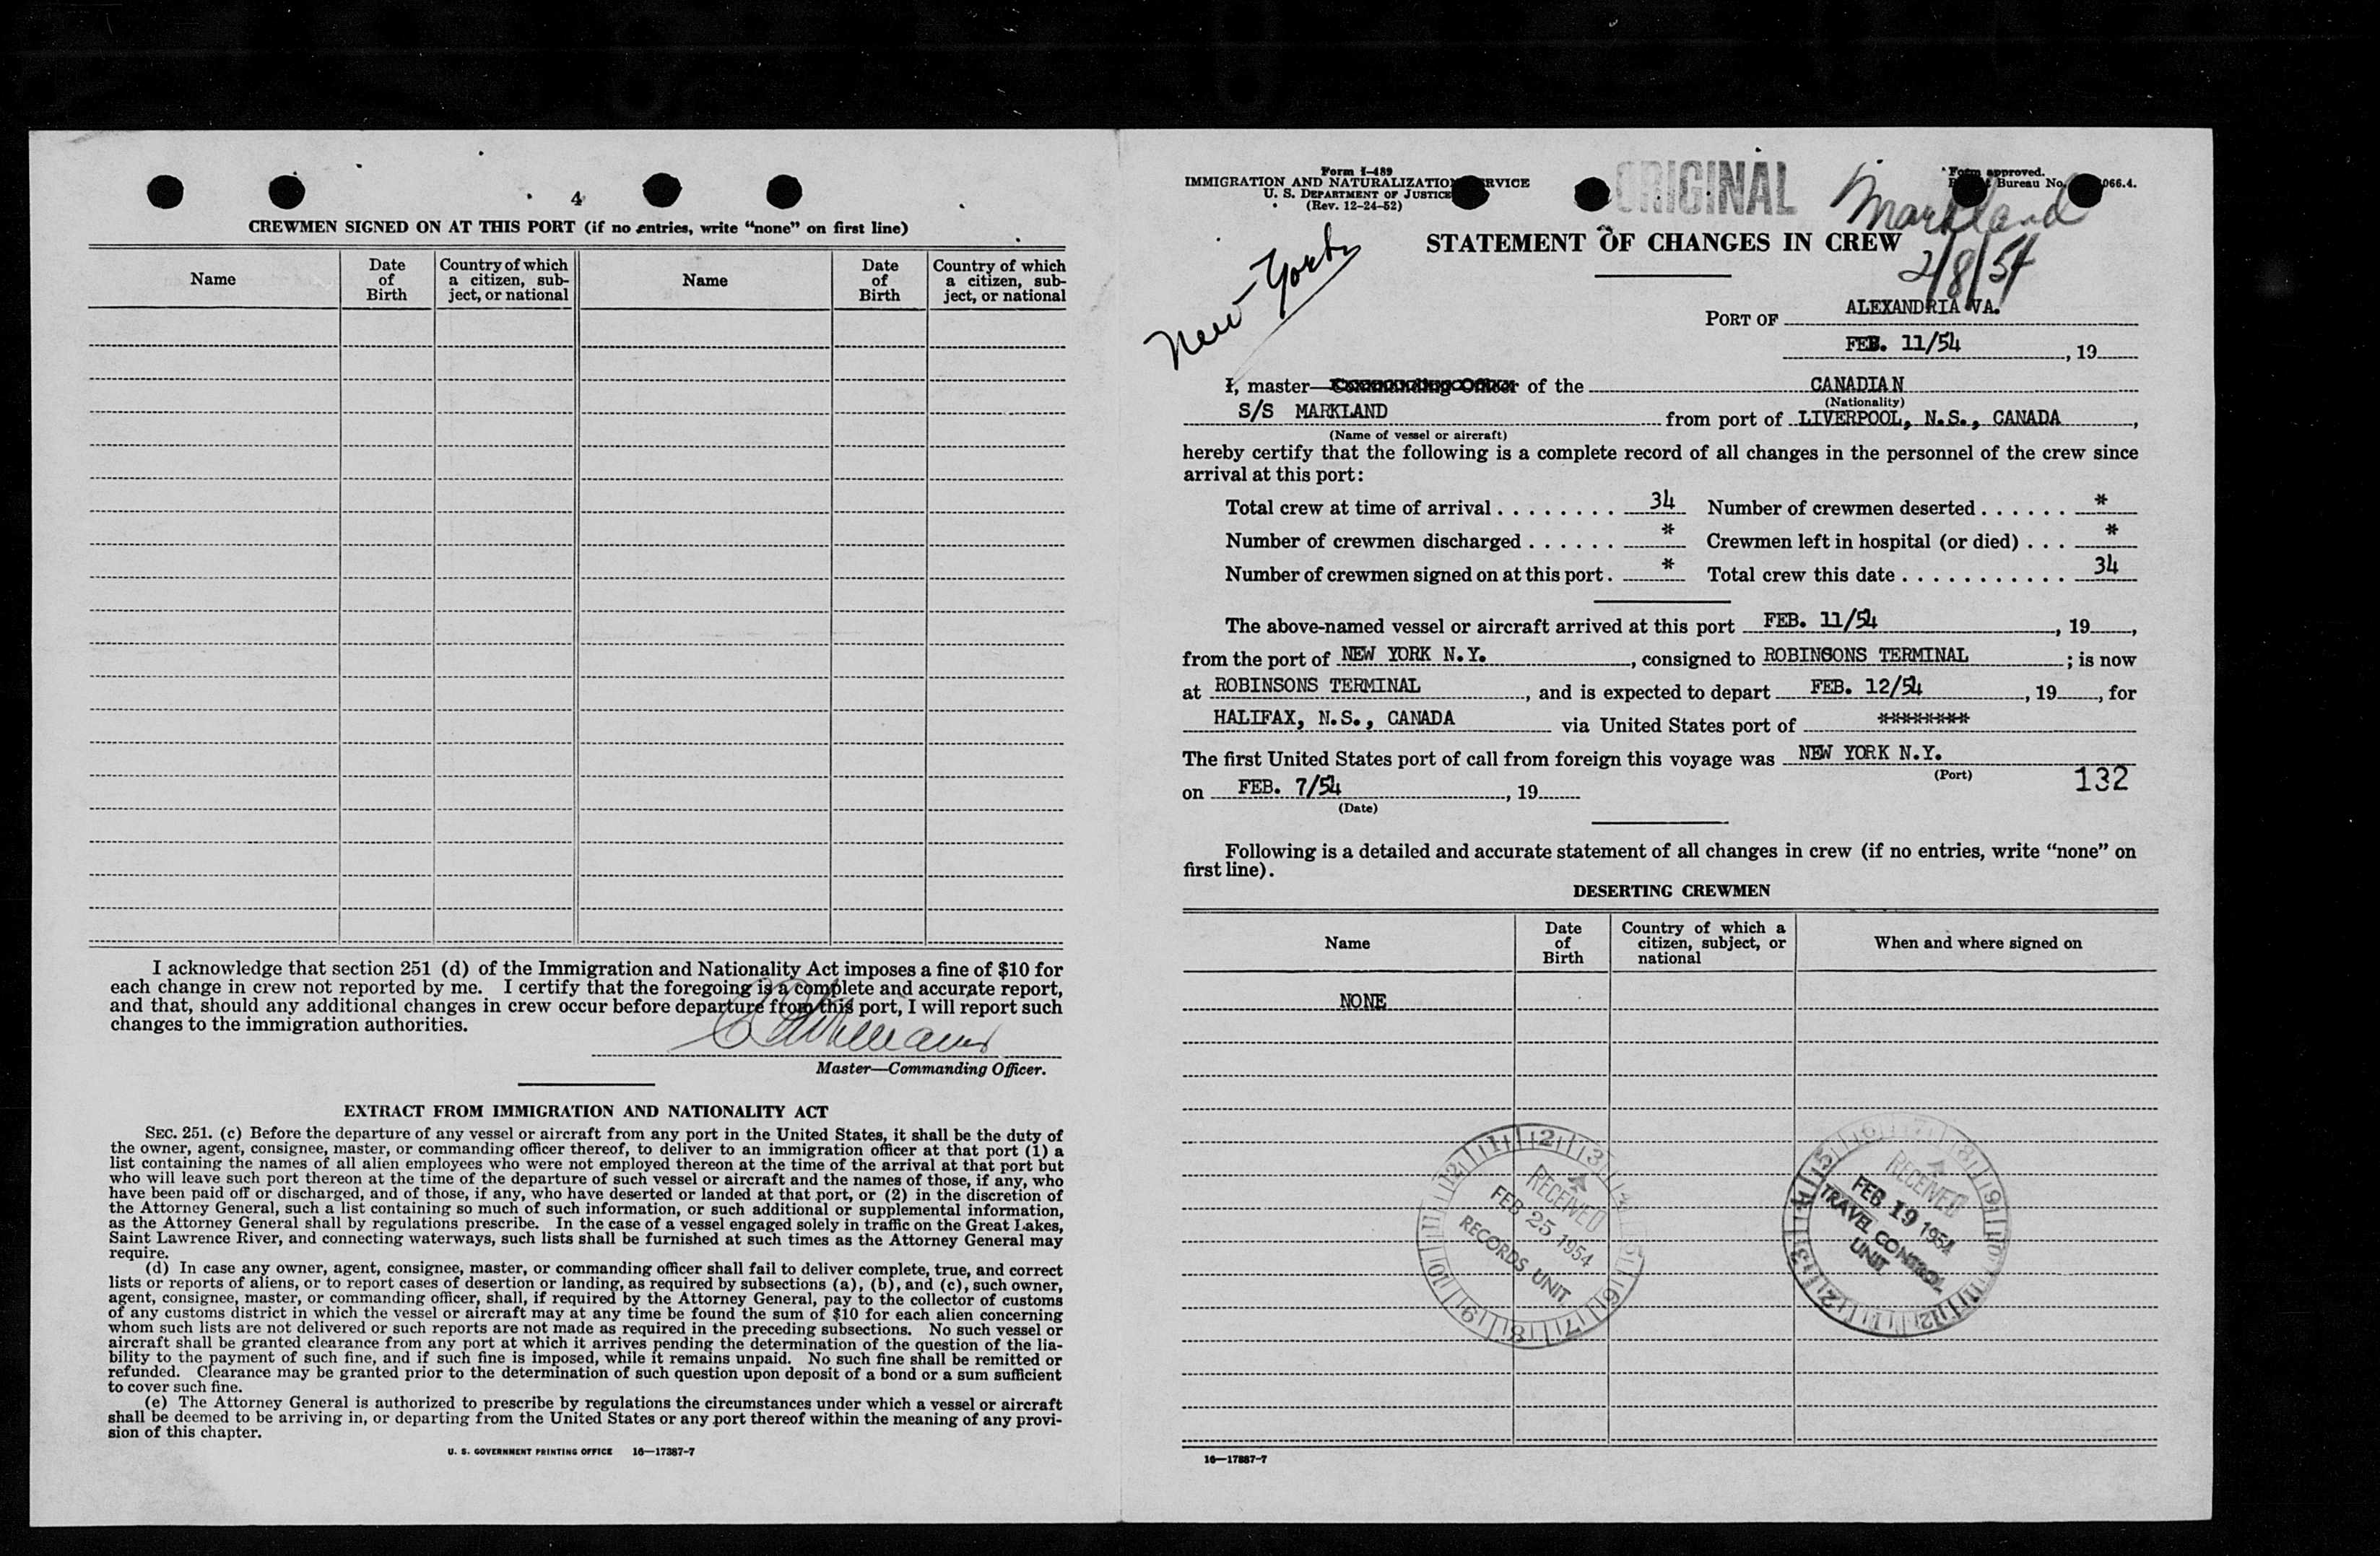 4
CREWMEN SIGNED ON AT THIS PORT (if no entries, write “none” on first line)
Name
Date of Birth
Country of which a citizen, subject, or national
Name
Date of Birth
Country of which a citizen, subject, or national
I acknowledge that section 251 (d) of the Immigration and Nationality Act imposes a fine of $10 for
each change in crew not reported by me. I certify that the foregoing is a complete and accurate report,
and that, should any additional changes in crew occur before departure from this port, I will report such
changes to the immigration authorities.
Master—Commanding Officer.
EXTRACT FROM IMMIGRATION AND NATIONALITY ACT
SEC. 251. (c) Before the departure of any vessel or aircraft from any port in the United States, it shall be the duty of
the owner, agent, consignee, master, or commanding officer thereof, to deliver to an immigration officer at that port (1) a
list containing the names of all alien employees who were not employed thereon at the time of the arrival at that port but
who will leave such port thereon at the time of the departure of such vessel or aircraft and the names of those, if any, who
have been paid off or discharged, and of those, if any, who have deserted or landed at that port, or (2) in the discretion of
the Attorney General, such a list containing so much of such information, or such additional or supplemental information,
as the Attorney General shall by regulations prescribe. In the case of a vessel engaged solely in traffic on the Great Lakes,
Saint Lawrence River, and connecting waterways, such lists shall be furnished at such times as the Attorney General may
require.
(d) In case any owner, agent, consignee, master, or commanding officer shall fail to deliver complete, true, and correct
lists or reports of aliens, or to report cases of desertion or landing, as required by subsections (a), (b), and (c), such owner,
agent, consignee, master, or commanding officer, shall, if required by the Attorney General, pay to the collector of customs
of any customs district in which the vessel or aircraft may at any time be found the sum of $10 for each alien concerning
whom such lists are not delivered or such reports are not made as required in the preceding subsections. No such vessel or
aircraft shall be granted clearance from any port at which it arrives pending the determination of the question of the lia-
bility to the payment of such fine, and if such fine is imposed, while it remains unpaid. No such fine shall be remitted or
refunded. Clearance may be granted prior to the determination of such question upon deposit of a bond or a sum sufficient
to cover such fine.
(e) The Attorney General is authorized to prescribe by regulations the circumstances under which a vessel or aircraft
shall be deemed to be arriving in, or departing from the United States or any port thereof within the meaning of any provi-
sion of this chapter.
U. S. GOVERNMENT PRINTING OFFICE 16—17387-7
Form I-489
IMMIGRATION AND NATURALIZATION SERVICE
U. S. DEPARTMENT OF JUSTICE
(Rev. 12-24-52)
ORIGINAL
Form approved.
Bureau No. 066.4.
Markland
2/8/54
New York
STATEMENT OF CHANGES IN CREW
PORT OF ALEXANDRIA VA.
FEB. 11/54, 19
I, master—Commanding Officer of the CANADIAN
(Nationality)
S/S MARKLAND from port of LIVERPOOL, N.S., CANADA,
(Name of vessel or aircraft)
hereby certify that the following is a complete record of all changes in the personnel of the crew since
arrival at this port:
Total crew at time of arrival 34 Number of crewmen deserted *
Number of crewmen discharged * Crewmen left in hospital (or died) *
Number of crewmen signed on at this port * Total crew this date 34
The above-named vessel or aircraft arrived at this port FEB. 11/54, 19,
from the port of NEW YORK N.Y., consigned to ROBINSONS TERMINAL; is now
at ROBINSONS TERMINAL, and is expected to depart FEB. 12/54, 19, for
HALIFAX, N.S., CANADA via United States port of ********
The first United States port of call from foreign this voyage was NEW YORK N.Y.
(Port)
132
on FEB. 7/54, 19
(Date)
Following is a detailed and accurate statement of all changes in crew (if no entries, write “none” on
first line).
DESERTING CREWMEN
Name
Date of Birth
Country of which a citizen, subject, or national
When and where signed on
NONE
RECEIVED
FEB 25 1954
RECORDS UNIT
RECEIVED
FEB 19 1954
TRAVEL CONTROL
UNIT
16—17887-7